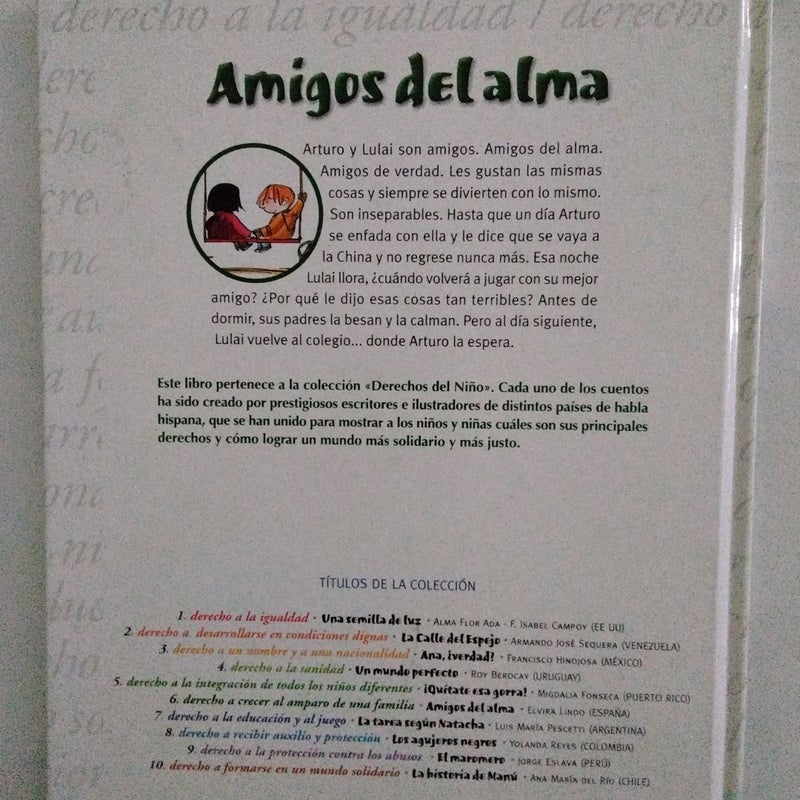 derecho a la igualdad / derecho
Amigos del alma
Arturo y Lulai son amigos. Amigos del alma.
Amigos de verdad. Les gustan las mismas
cosas y siempre se divierten con lo mismo.
Son inseparables. Hasta que un día Arturo
se enfada con ella y le dice que se vaya a
la China y no regrese nunca más. Esa noche
Lulai llora, ¿cuándo volverá a jugar con su mejor
amigo? ¿Por qué le dijo esas cosas tan terribles? Antes de
dormir, sus padres la besan y la calman. Pero al día siguiente,
Lulai vuelve al colegio... donde Arturo la espera.
Este libro pertenece a la colección «Derechos del Niño». Cada uno de los cuentos
ha sido creado por prestigiosos escritores e ilustradores de distintos países de habla
hispana, que se han unido para mostrar a los niños y niñas cuáles son sus principales
derechos y cómo lograr un mundo más solidario y más justo.
TÍTULOS DE LA COLECCIÓN
1. derecho a la igualdad · Una semilla de luz · ALMA FLOR ADA - F. ISABEL CAMPOY (EE UU)
2. derecho a desarrollarse en condiciones dignas · La Calle del Espejo · ARMANDO JOSÉ SEQUERA (VENEZUELA)
3. derecho a un nombre y a una nacionalidad · Ana, ¿verdad? · FRANCISCO HINOJOSA (MÉXICO)
4. derecho a la sanidad · Un mundo perfecto · ROY BEROCAY (URUGUAY)
5. derecho a la integración de todos los niños diferentes · ¡Quítate esa gorra! · MIGDALIA FONSECA (PUERTO RICO)
6. derecho a crecer al amparo de una familia · Amigos del alma · ELVIRA LINDO (ESPAÑA)
7. derecho a la educación y al juego · La tarea según Natacha · LUIS MARÍA PESCETTI (ARGENTINA)
8. derecho a recibir auxilio y protección · Los agujeros negros · YOLANDA REYES (COLOMBIA)
9. derecho a la protección contra los abusos · El maromero · JORGE ESLAVA (PERÚ)
10. derecho a formarse en un mundo solidario · La historia de Manú · ANA MARÍA DEL RÍO (CHILE)